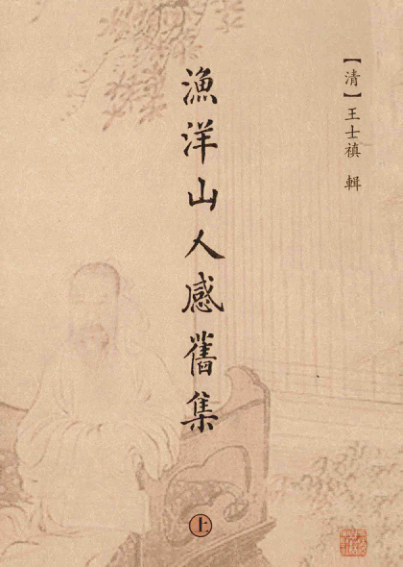 【清】王士禛 輯
漁洋山人感舊集
上